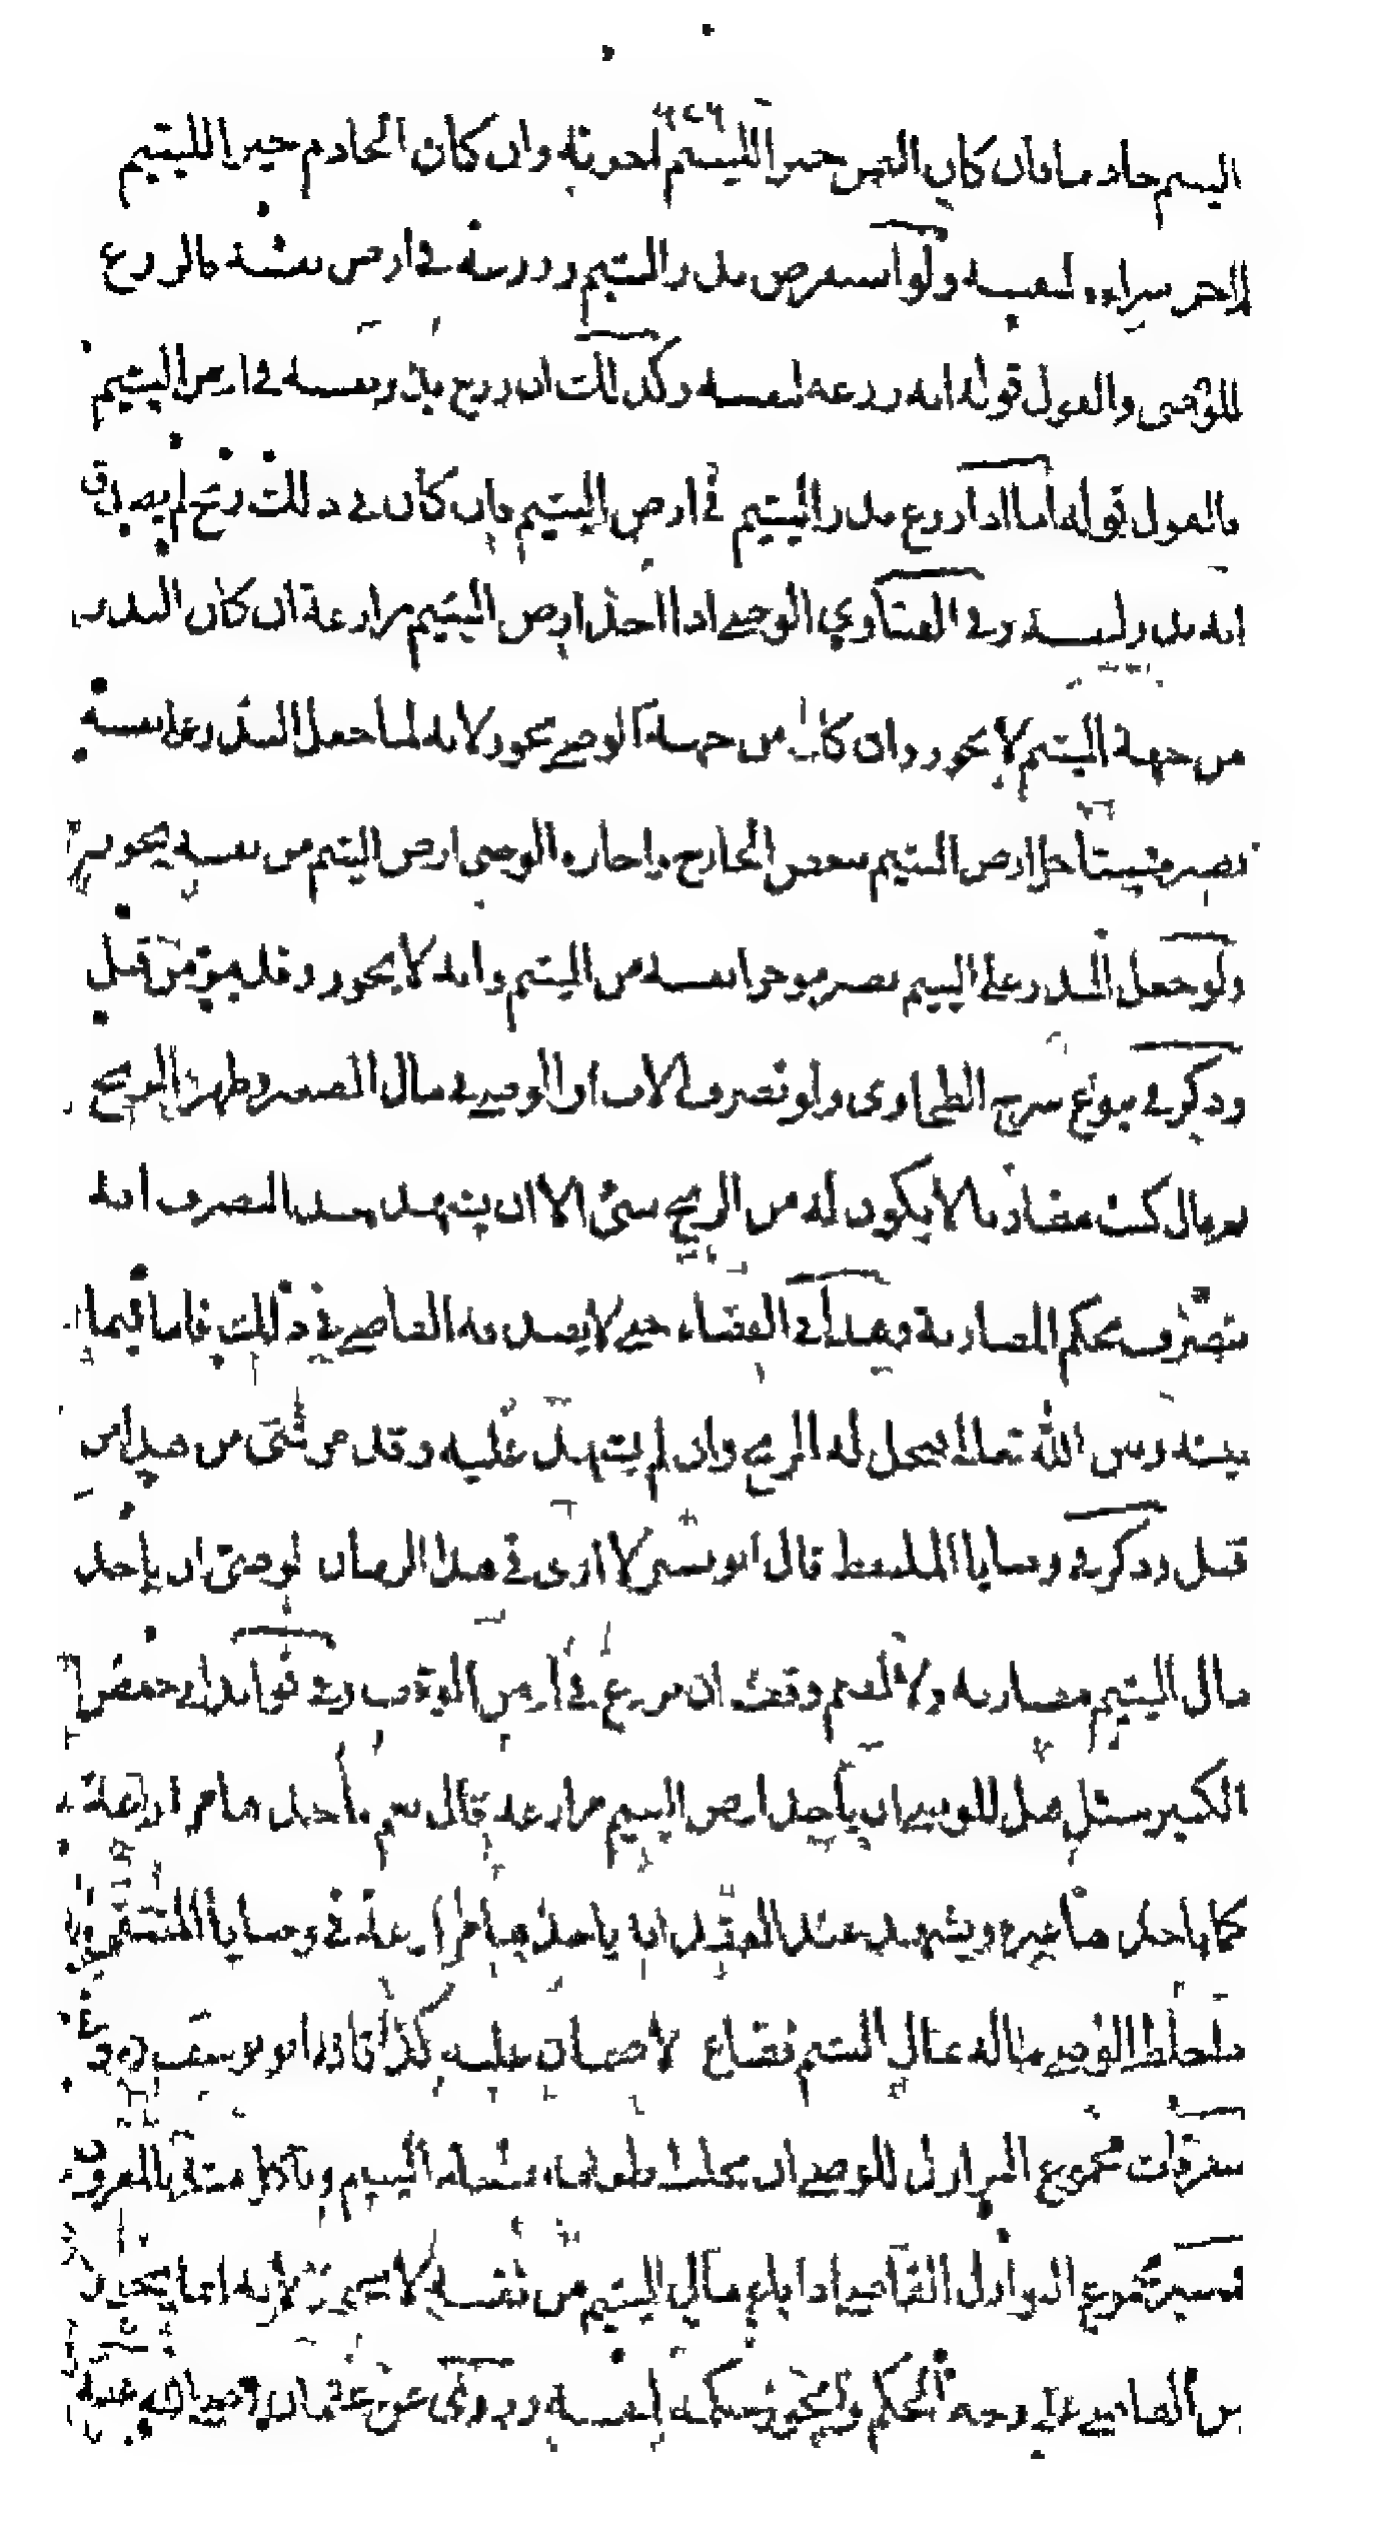 اليتيم خادما فان كان الثمن خيرا لليتيم احدثه وان كان الخادم خيرا لليتيم
لا اجر شراءه لنفسه ولو استقرض بذر اليتيم وزرعه في ارض نفسه فالزرع
للوصي والقول قوله انه زرعه لنفسه وكذلك ان زرع بذر نفسه في ارض اليتيم
فالقول قوله اما اذا زرع بذر اليتيم في ارض اليتيم فان كان في ذلك ربح لم يصدق
انه بذر لنفسه وفي الفتاوي الوصي اذا اخذ ارض اليتيم مزارعة ان كان البذر
من جهة اليتيم لا يجوز وان كان من جهة الوصي يجوز لانه لما جعل البذر على نفسه
يصير مستأجرا ارض اليتيم ببعض الخارج واجارة الوصي ارض اليتيم من نفسه يجوز
ولو جعل البذر على اليتيم يصير موجرا نفسه من اليتيم وانه لا يجوز وقد مر من قبل
وذكر في بيوع شرح الطحاوى ولو تصرف الاب او الوصي في مال الصغير وظهر الربح
فقال كنت مضاربا لا يكون له من الربح شئ الا ان يشهد عند التصرف انه
يتصرف بحكم المضاربة وهذا في القضاء حتى لا يصدقه القاضي في ذلك فاما فيما
بينه وبين الله تعالى يحل له الربح وان لم يشهد عليه وقد مر شئ من هذا من
قبل وذكر في وصايا الملتقط قال ابو نصر لا ارى في هذا الزمان لوصى ان ياخذ
مال اليتيم مضاربة ولا لقيم وقف ان يزرع في ارض الوقف وفي فوائد ابي حفص
الكبير سئل هل للوصي ان ياخذ ارض اليتيم مزارعة قال نعم ياخذها مزارعة
كما ياخذ من غيره ويشهد عند العقد انه ياخذها مزارعة في وصايا
خلط الوصي ماله بمال اليتيم فضاع لا ضمان عليه كذا قاله ابو يوسف وفي
متفرقات مجموع النوازل للوصي ان يخلط طعامه بطعام اليتيم وياكل منه بالمعروف
تفسير مجموع النوازل القاضي اذا باع مال اليتيم من نفسه لا يجوز لانه انما يجوز
من القاضي على وجه الحكم ولا يجوز حكمه لنفسه وروي عن عثمان رضي الله عنه